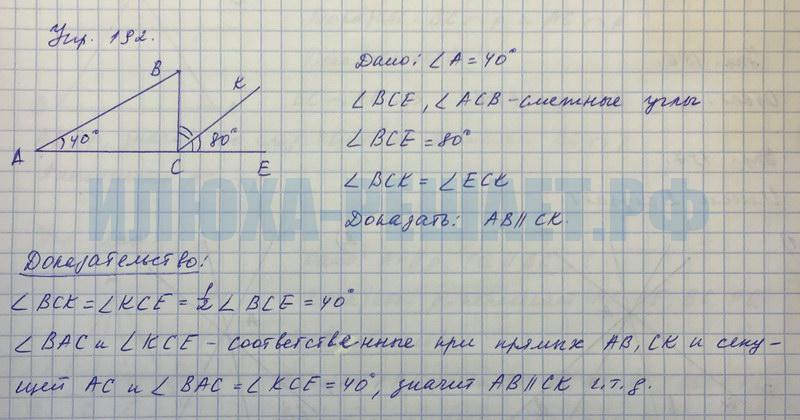 Упр. 192.
B
K
40°
80°
A
C
E
Дано: ∠A = 40°
∠BCE, ∠ACB - смежные углы
∠BCE = 80°
∠BCK = ∠ECK
Доказать: AB || CK.
ИЛЮХА-РЕШАЕТ.РФ
Доказательство:
∠BCK = ∠KCE = 1/2 ∠BCE = 40°
∠BAC и ∠KCE - соответственные при прямых AB, CK и секу-
щей AC и ∠BAC = ∠KCE = 40°, значит AB || CK ч.т.д.